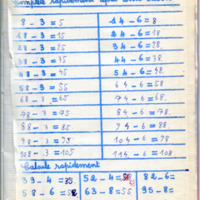 Complète rapidement
8 - 3 = 5 14 - 6 = 8
18 - 3 = 15 24 - 6 = 18
28 - 3 = 25 34 - 6 = 28
38 - 3 = 35 44 - 6 = 38
48 - 3 = 45 54 - 6 = 48
58 - 3 = 55 64 - 6 = 58
68 - 3 = 65 74 - 6 = 68
78 - 3 = 75 84 - 6 = 78
88 - 3 = 85 94 - 6 = 88
98 - 3 = 95 104 - 6 = 98
108 - 3 = 105 114 - 6 = 108
Calcule rapidement
39 - 4 = 35 52 - 4 = 82 - 6 =
58 - 6 = 52 63 - 8 = 55 95 - 8 =